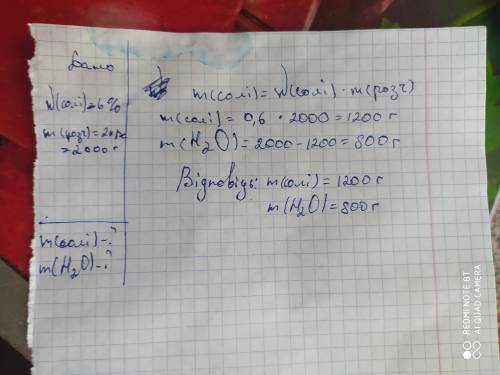 Дано
W(солі)=6%
m(розч)=2кг=
=2000г
m(солі)-?
m(H₂O)-?
m(солі)=W(солі)·m(розч)
m(солі)=0,6·2000=1200г
m(H₂O)=2000-1200=800г
Відповідь: m(солі)=1200г
m(H₂O)=800г
REDMI NOTE 8T
AI QUAD CAMERA